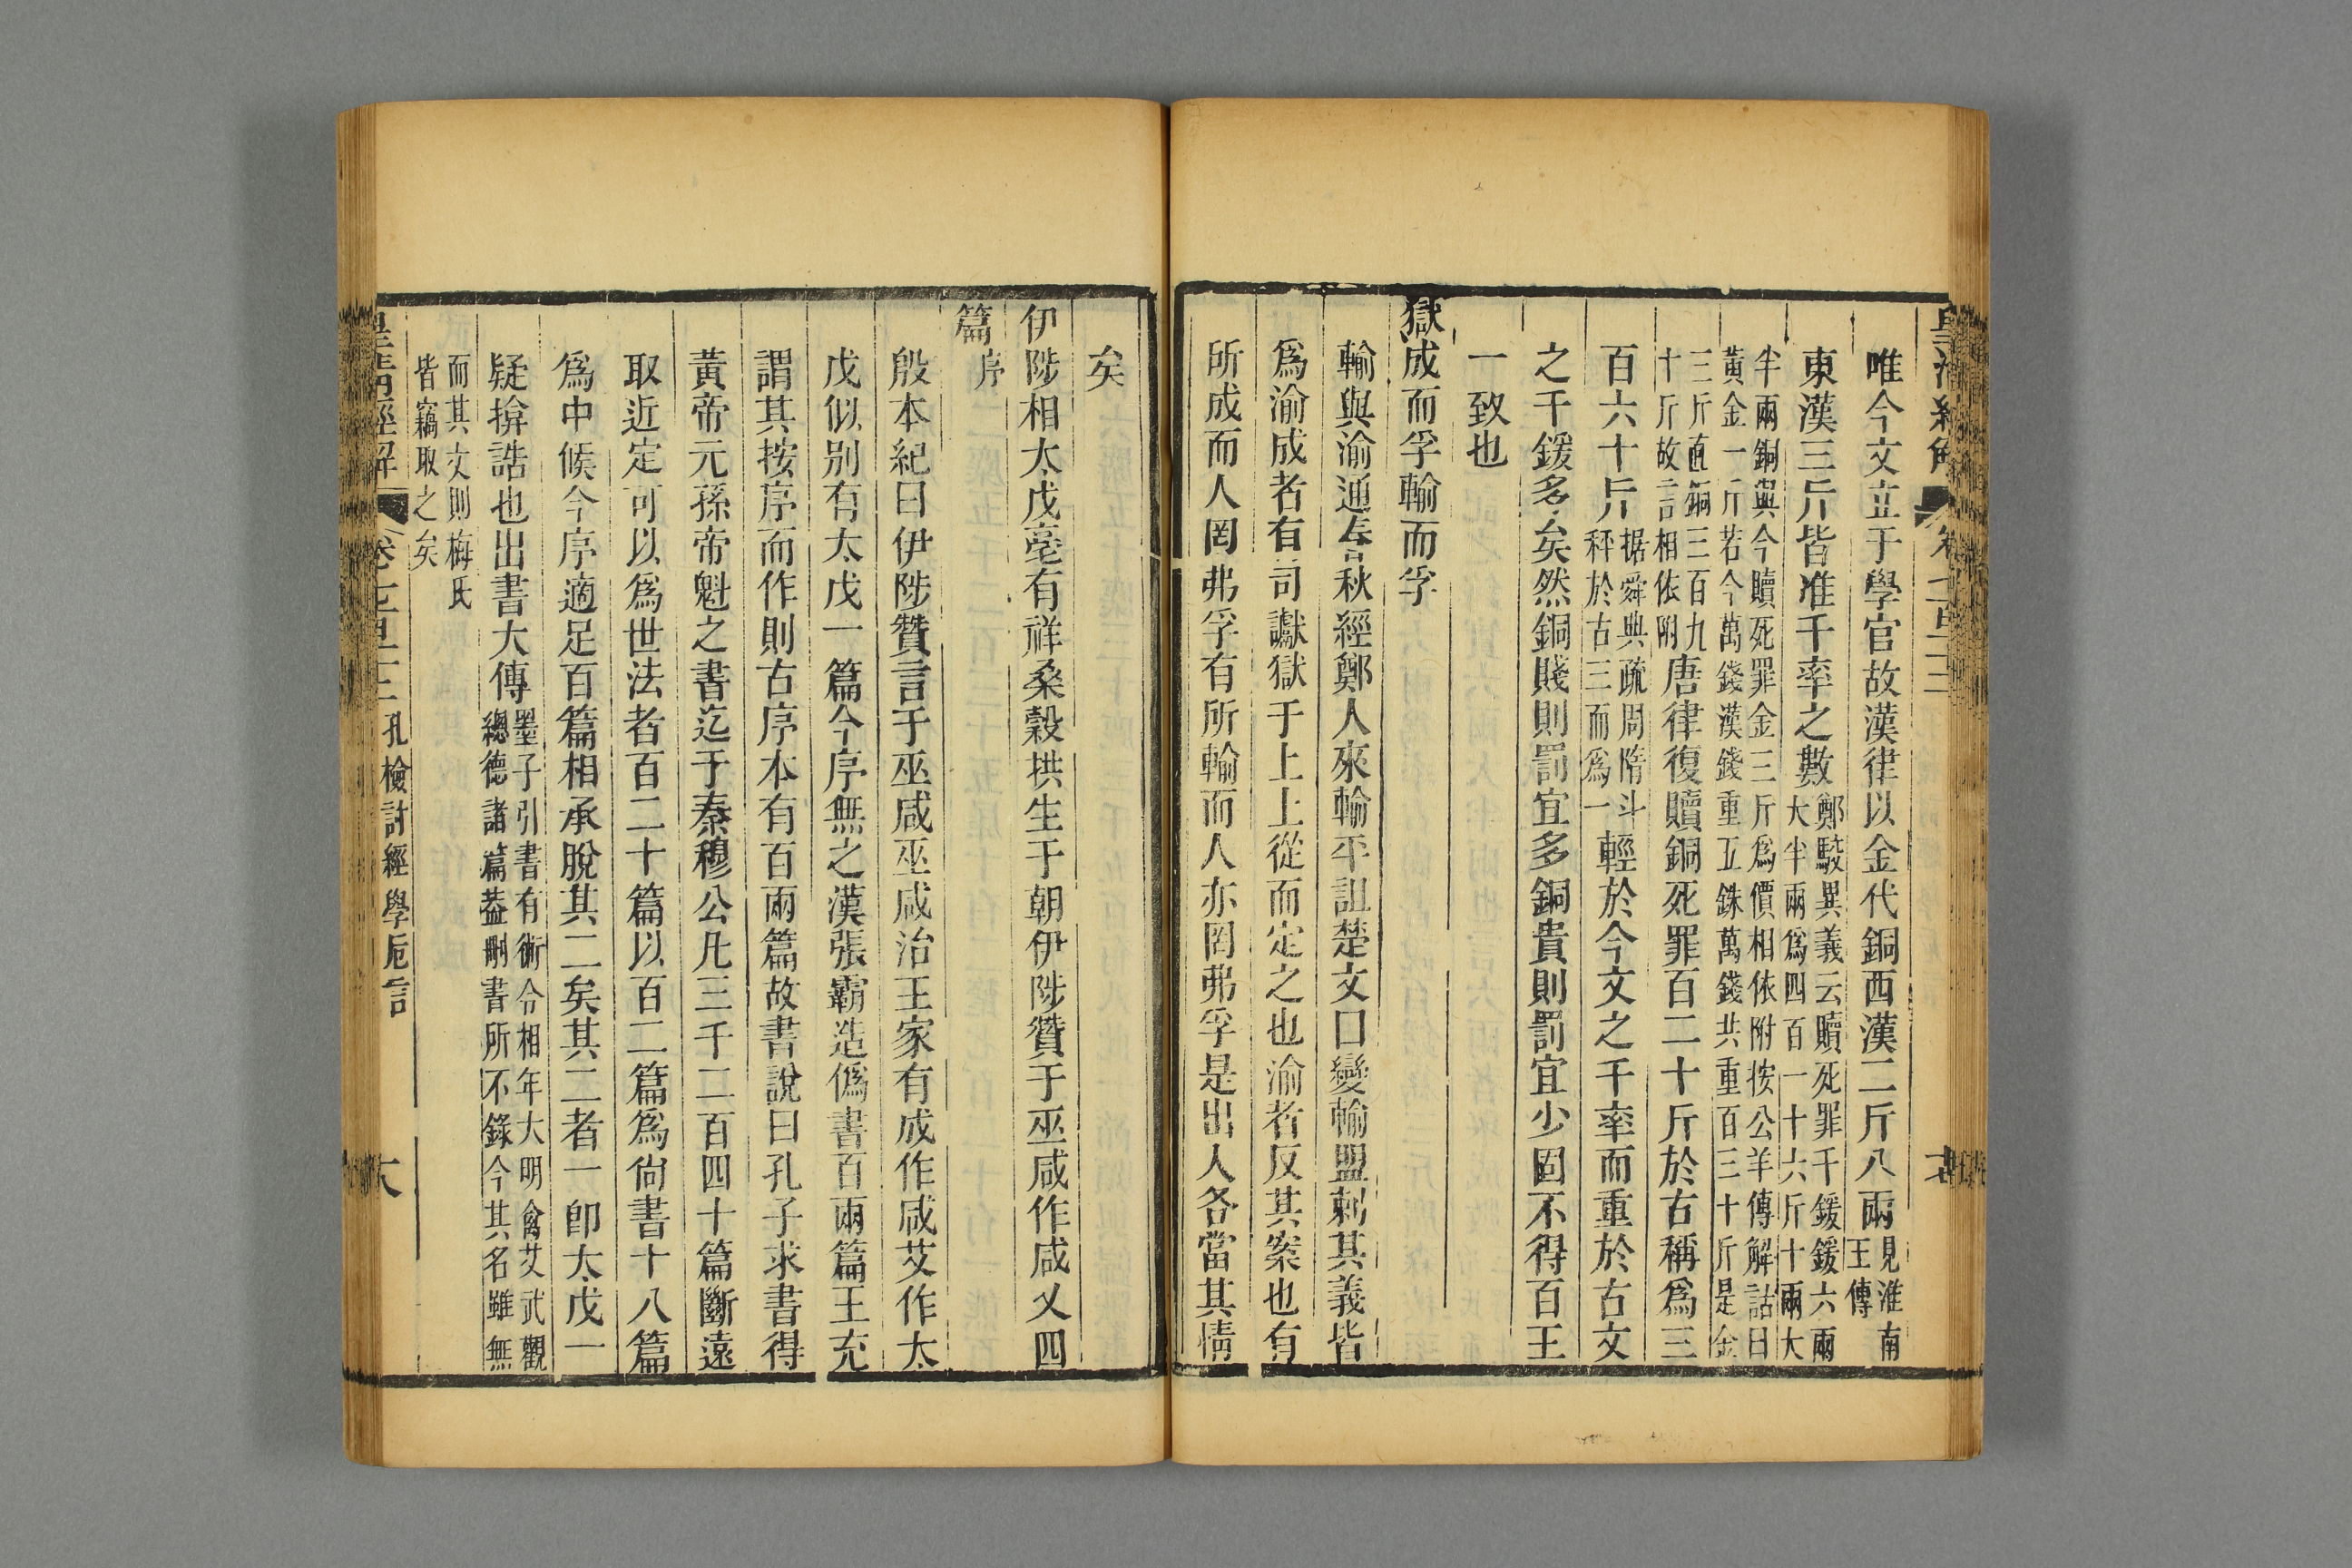 皇清經解
卷七百十三
唯今文立于學官故漢律以金代銅西漢二斤八兩見淮南王傳
東漢三斤皆准千率之數鄭駮異義云贖死罪千鍰鍰六兩大半兩爲四百一十六斤十兩大
半兩銅與今贖死罪金三斤爲價相依附按公羊傳解詁曰黃金一斤若今萬錢漢錢重五銖萬錢共重百三十斤是金
三斤直銅三百九十斤故言相依附唐律復贖銅死罪百二十斤於古稱爲三
百六十斤据舜典疏周隋斗秤於古三而爲一輕於今文之千率而重於古文
之千鍰多矣然銅賤則罰宜多銅貴則罰宜少固不得百王
一致也
獄成而孚輸而孚
輸與渝通春秋經鄭人來輸平詛楚文曰變輸盟刺其義皆
爲渝成者有司讞獄于上上從而定之也渝者反其案也有
所成而人罔弗孚有所輸而人亦罔弗孚是出人各當其情
矣
伊陟相太戊亳有祥桑榖拱生于朝伊陟贊于巫咸作咸乂四
篇序
殷本紀曰伊陟贊言于巫咸巫咸治王家有成作咸艾作太
戊似別有太戊一篇今序無之漢張霸造僞書百兩篇王充
謂其按序而作則古序本有百兩篇故書說曰孔子求書得
黃帝元孫帝魁之書迄于秦穆公凡三千二百四十篇斷遠
取近定可以爲世法者百二十篇以百二篇爲尙書十八篇
爲中候今序適足百篇相承脫其二矣其二者一卽太戊一
疑揜誥也出書大傳墨子引書有術令相年大明禽艾武觀總德諸篇葢刪書所不錄今其名雖無
而其文則梅氏皆竊取之矣
皇清經解
孔檢討經學卮言